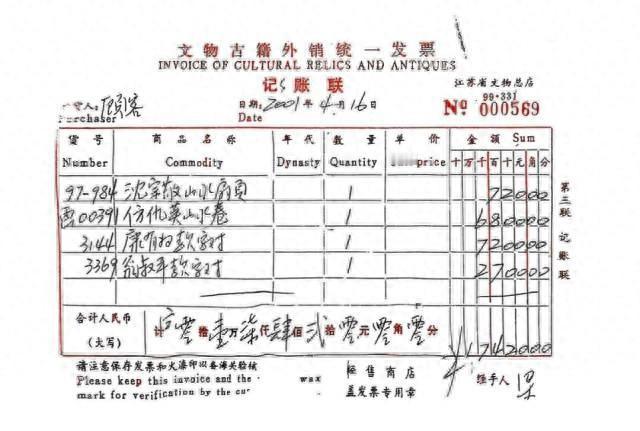 文物古籍外销统一发票
INVOICE OF CULTURAL RELICS AND ANTIQUES
记账联
江苏省文物总店
99·331
货人:顾客 日期:2001年4月16日 № 000569
Purchaser Date
货号 商品名称 年代 数量 单价 金额 Sum
Number Commodity Dynasty Quantity price 十万千百十元角分
97-984 沈宗敬山水扇页 1 72000
00391 仿仇英山水卷 1 680000
3144 康有为款字对 1 720000
3369 翁叔平款字对 1 270000
合计人民币 计 零 拾 壹 万 柒 仟 肆 佰 贰 拾 零 元 零 角 零 分 ¥1742000
(大写)
第三联 记账联
请注意保存发票和火漆印以备海关验核 经售商店 经手人 梁
Please keep this invoice and the wax 盖发票专用章
mark for verification by the